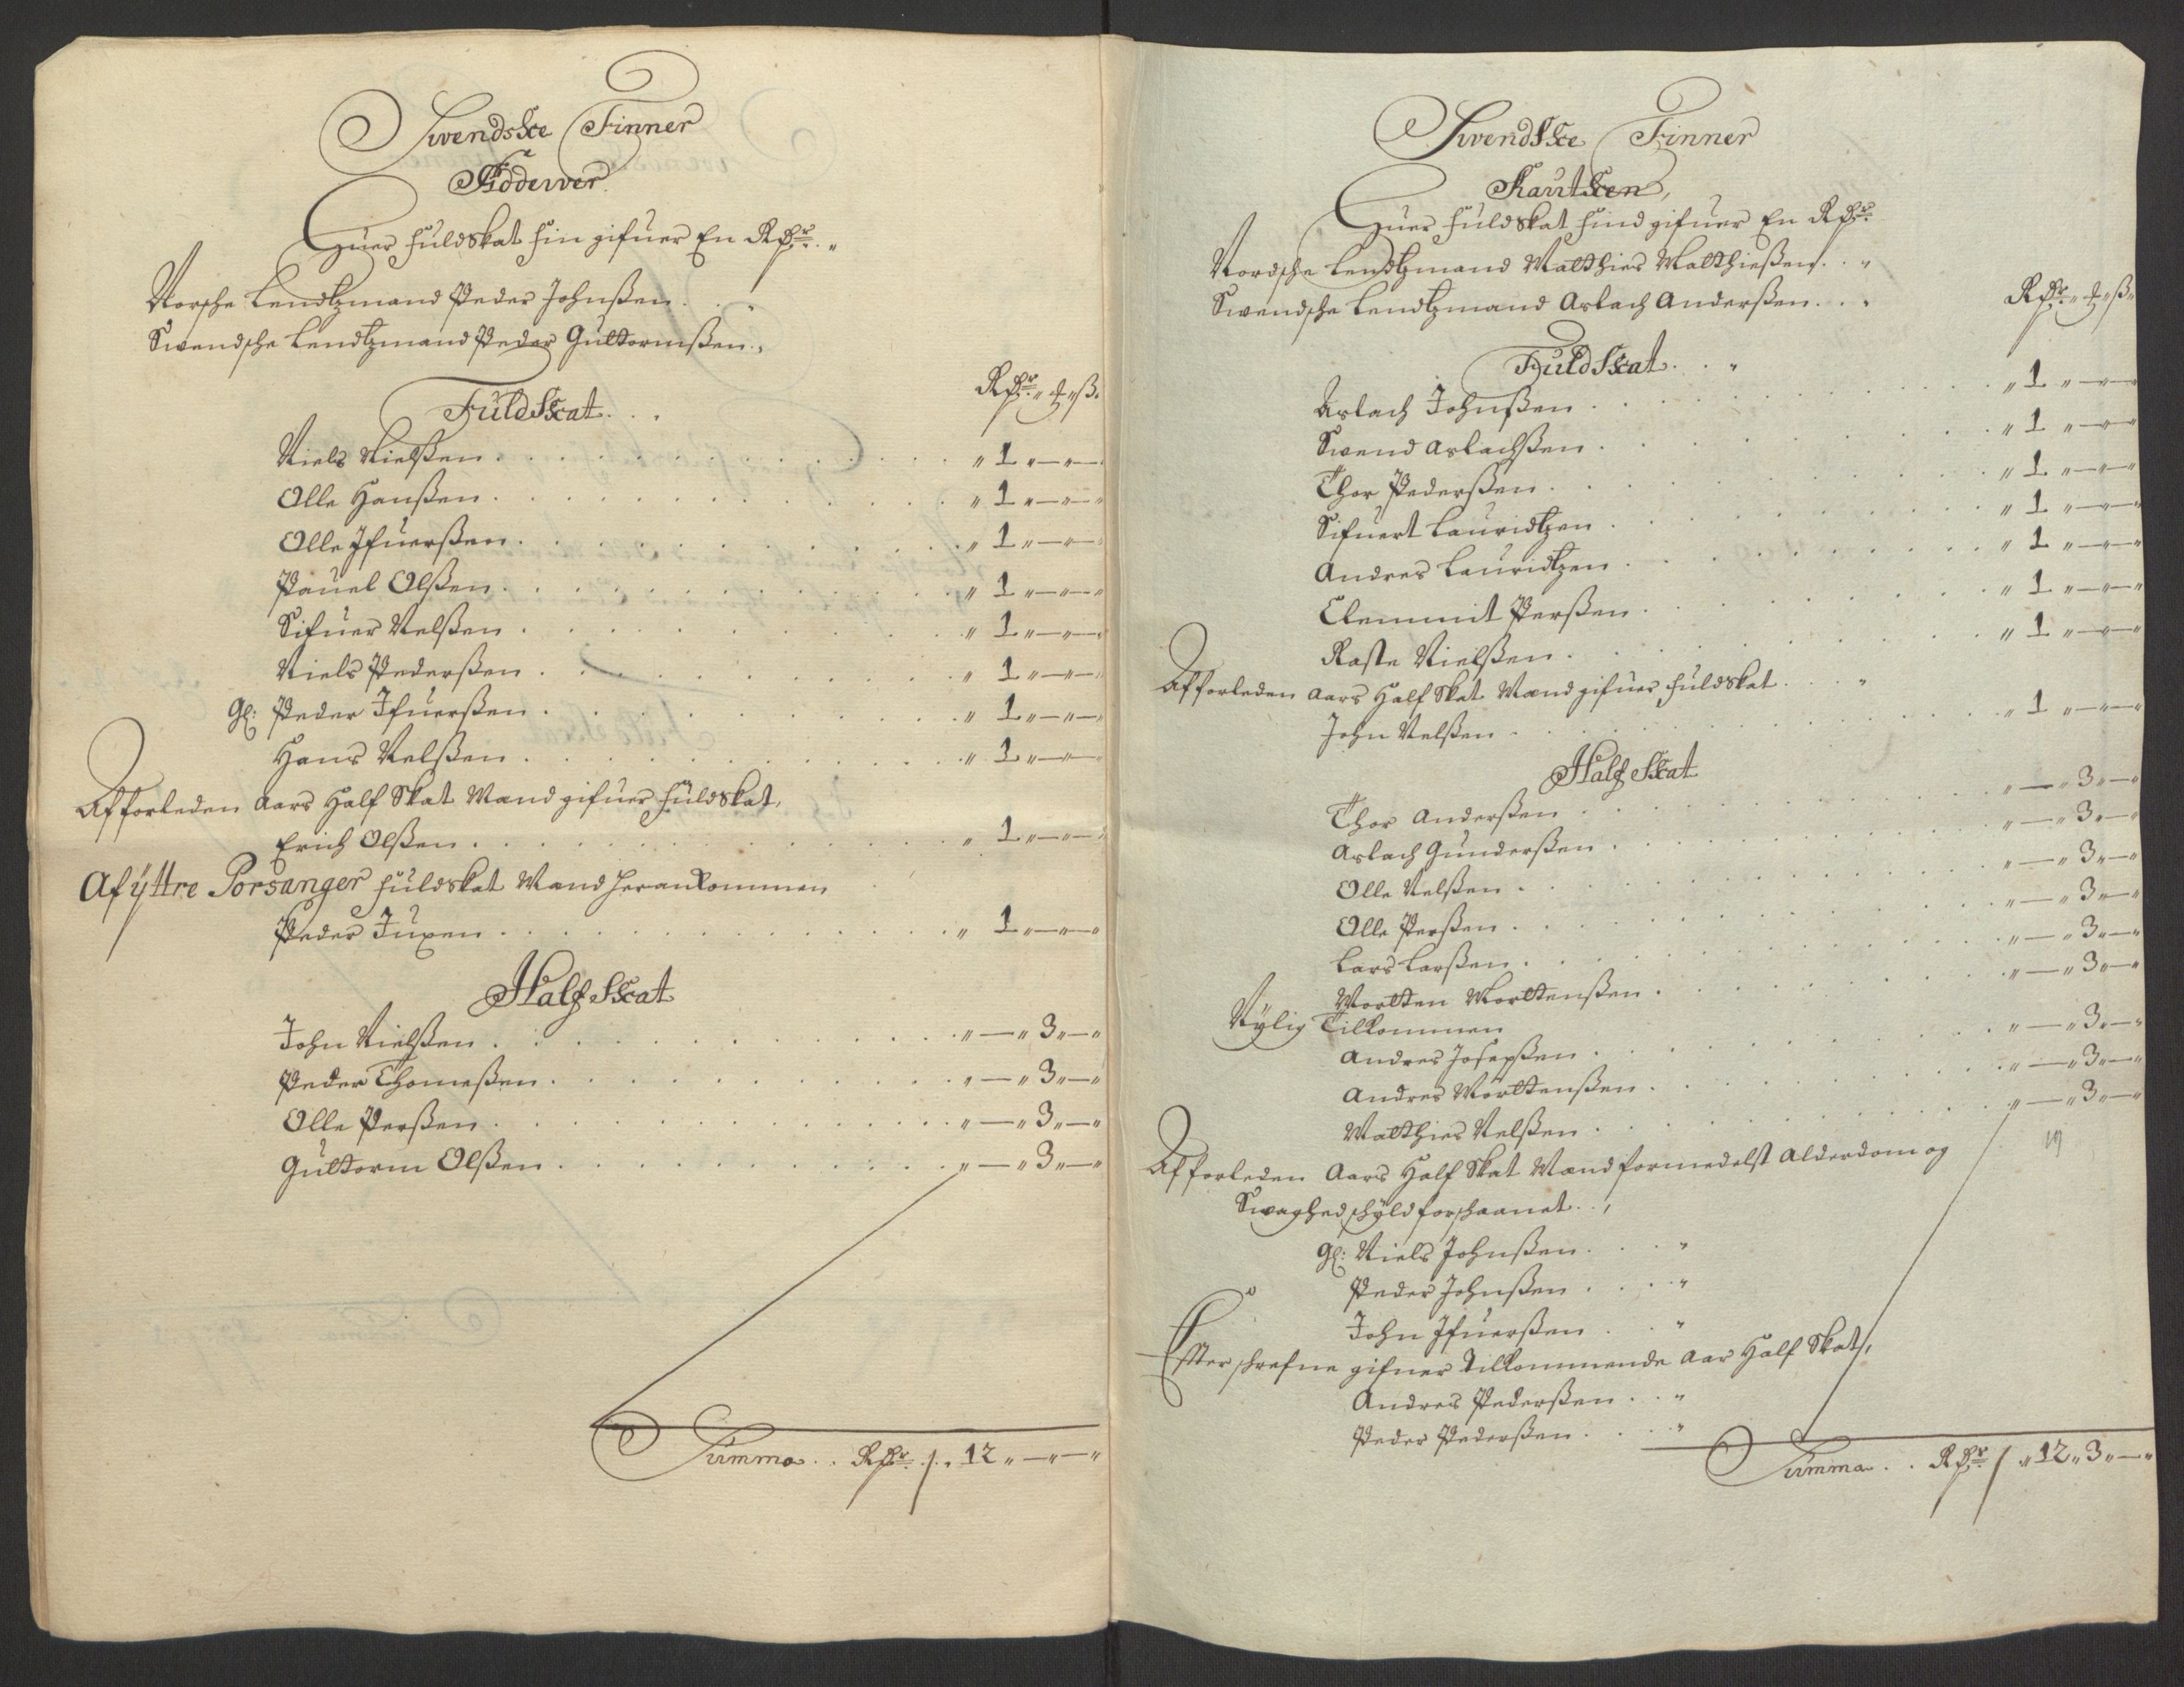 Swendske Finner
Fiddewer
Huer fuldskat fin gifuer En Rdr
Norsche Lendtzmand Peder Johnßen
Swendsche Lendtzmand Peder Guttormßen
Rdr " ₰ " ß
Fuld Skat
Niels Nielßen " 1 " — " —
Olle Hanßen " 1 " — " —
Olle Ifuerßen " 1 " — " —
Pauel Olßen " 1 " — " —
Sifuer Nelßen " 1 " — " —
Niels Pederßen " 1 " — " —
Gl: Peder Ifuerßen " 1 " — " —
Hans Nelßen " 1 " — " —
Af forleden Aars Half Skat Mænd gifuer fuldskat,
Erich Olßen " 1 " — " —
Af ÿttre Porsanger fuldskat Mand herankommen
Peder Juxen " 1 " — " —
Half Skat
John Nielßen " — " 3 " — "
Peder Thomeßen " — " 3 " — "
Olle Perßen " — " 3 " — "
Guttorm Olßen " — " 3 " — "
Summa . . Rdr / . 12 " — " — "
Swendske Finner
Kautken,
Huer fuldskat find gifuer En Rdr
Nordsche Lendtzmand Matthies Matthießen
Swendsche Lendtzmand Aslach Anderßen
Rdr " ₰ " ß
Fuld Skat
Aslach Johnßen " 1 " — " —
Swend Aslachßen " 1 " — " —
Thor Pederßen " 1 " — " —
Sifuert Lauridtzen " 1 " — " —
Andres Lauridtzen " 1 " — " —
Clemmit Perßen " 1 " — " —
Raste Nielßen " 1 " — " —
Af forleden Aars Half Skat Mænd gifuer fuldskat
John Nelßen " 1 " — " —
Half Skat
Thor Anderßen " — " 3 " —
Aslach Gunderßen " — " 3 " —
Olle Nelßen " — " 3 " —
Olle Perßen " — " 3 " —
Lars Larßen " — " 3 " —
Mortten Morttenßen " — " 3 " —
Nÿlig Tilkommen
Andres Josepßen " — " 3 " —
Andres Morttenßen " — " 3 " —
Matthies Nelßen " — " 3 " —
Af forleden Aars Half Skat Mænd formedelst Alderdom og
Swaghed schÿld forschaanet
Gl: Niels Johnßen
Peder Johnßen
John Ifuerßen
Effter schrefne gifuer Tilkommende Aar Half Skat,
Andres Pederßen
Peder Pederßen
Summa . . Rdr / " 12 " 3 " — "